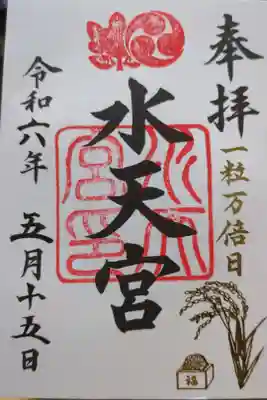 奉拝
一粒万倍日
水天宮
令和六年 五月十五日
福